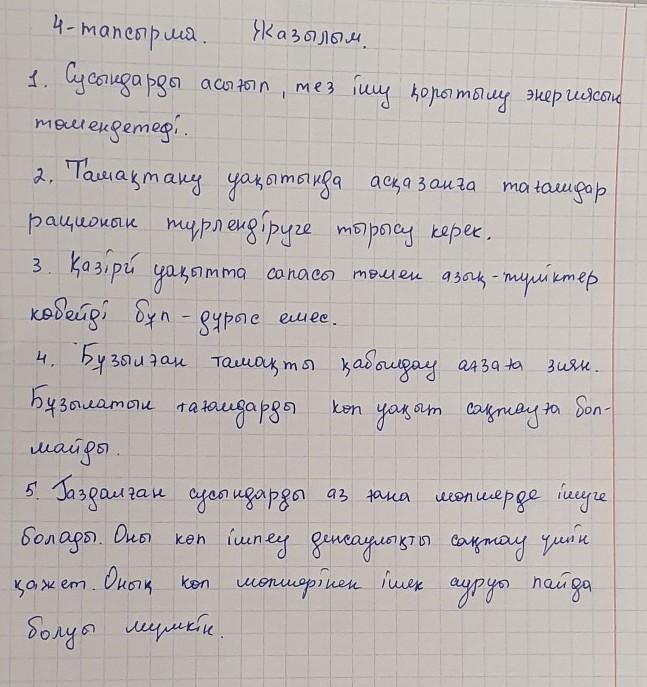 4-тапсырма. Жазылым.
1. Сусындарды асығып, тез ішу қорытылу энергиясын
төмендетеді.
2. Тамақтану уақытында асқазанға тағамдар
рационын түрлендіруге тырысу керек.
3. Қазіргі уақытта сапасы төмен азық-түліктер
көбейді бұл - дұрыс емес.
4. Бұзылған тамақты қабылдау ағзаға зиян.
Бұзылатын тағамдарды көп уақыт сақтауға бол-
майды.
5. Газдалған сусындарды аз ғана мөлшерде ішуге
болады. Оны көп ішпеу денсаулықты сақтау үшін
қажет. Оның көп мөлшерінен ішек ауруы пайда
болуы мүмкін.